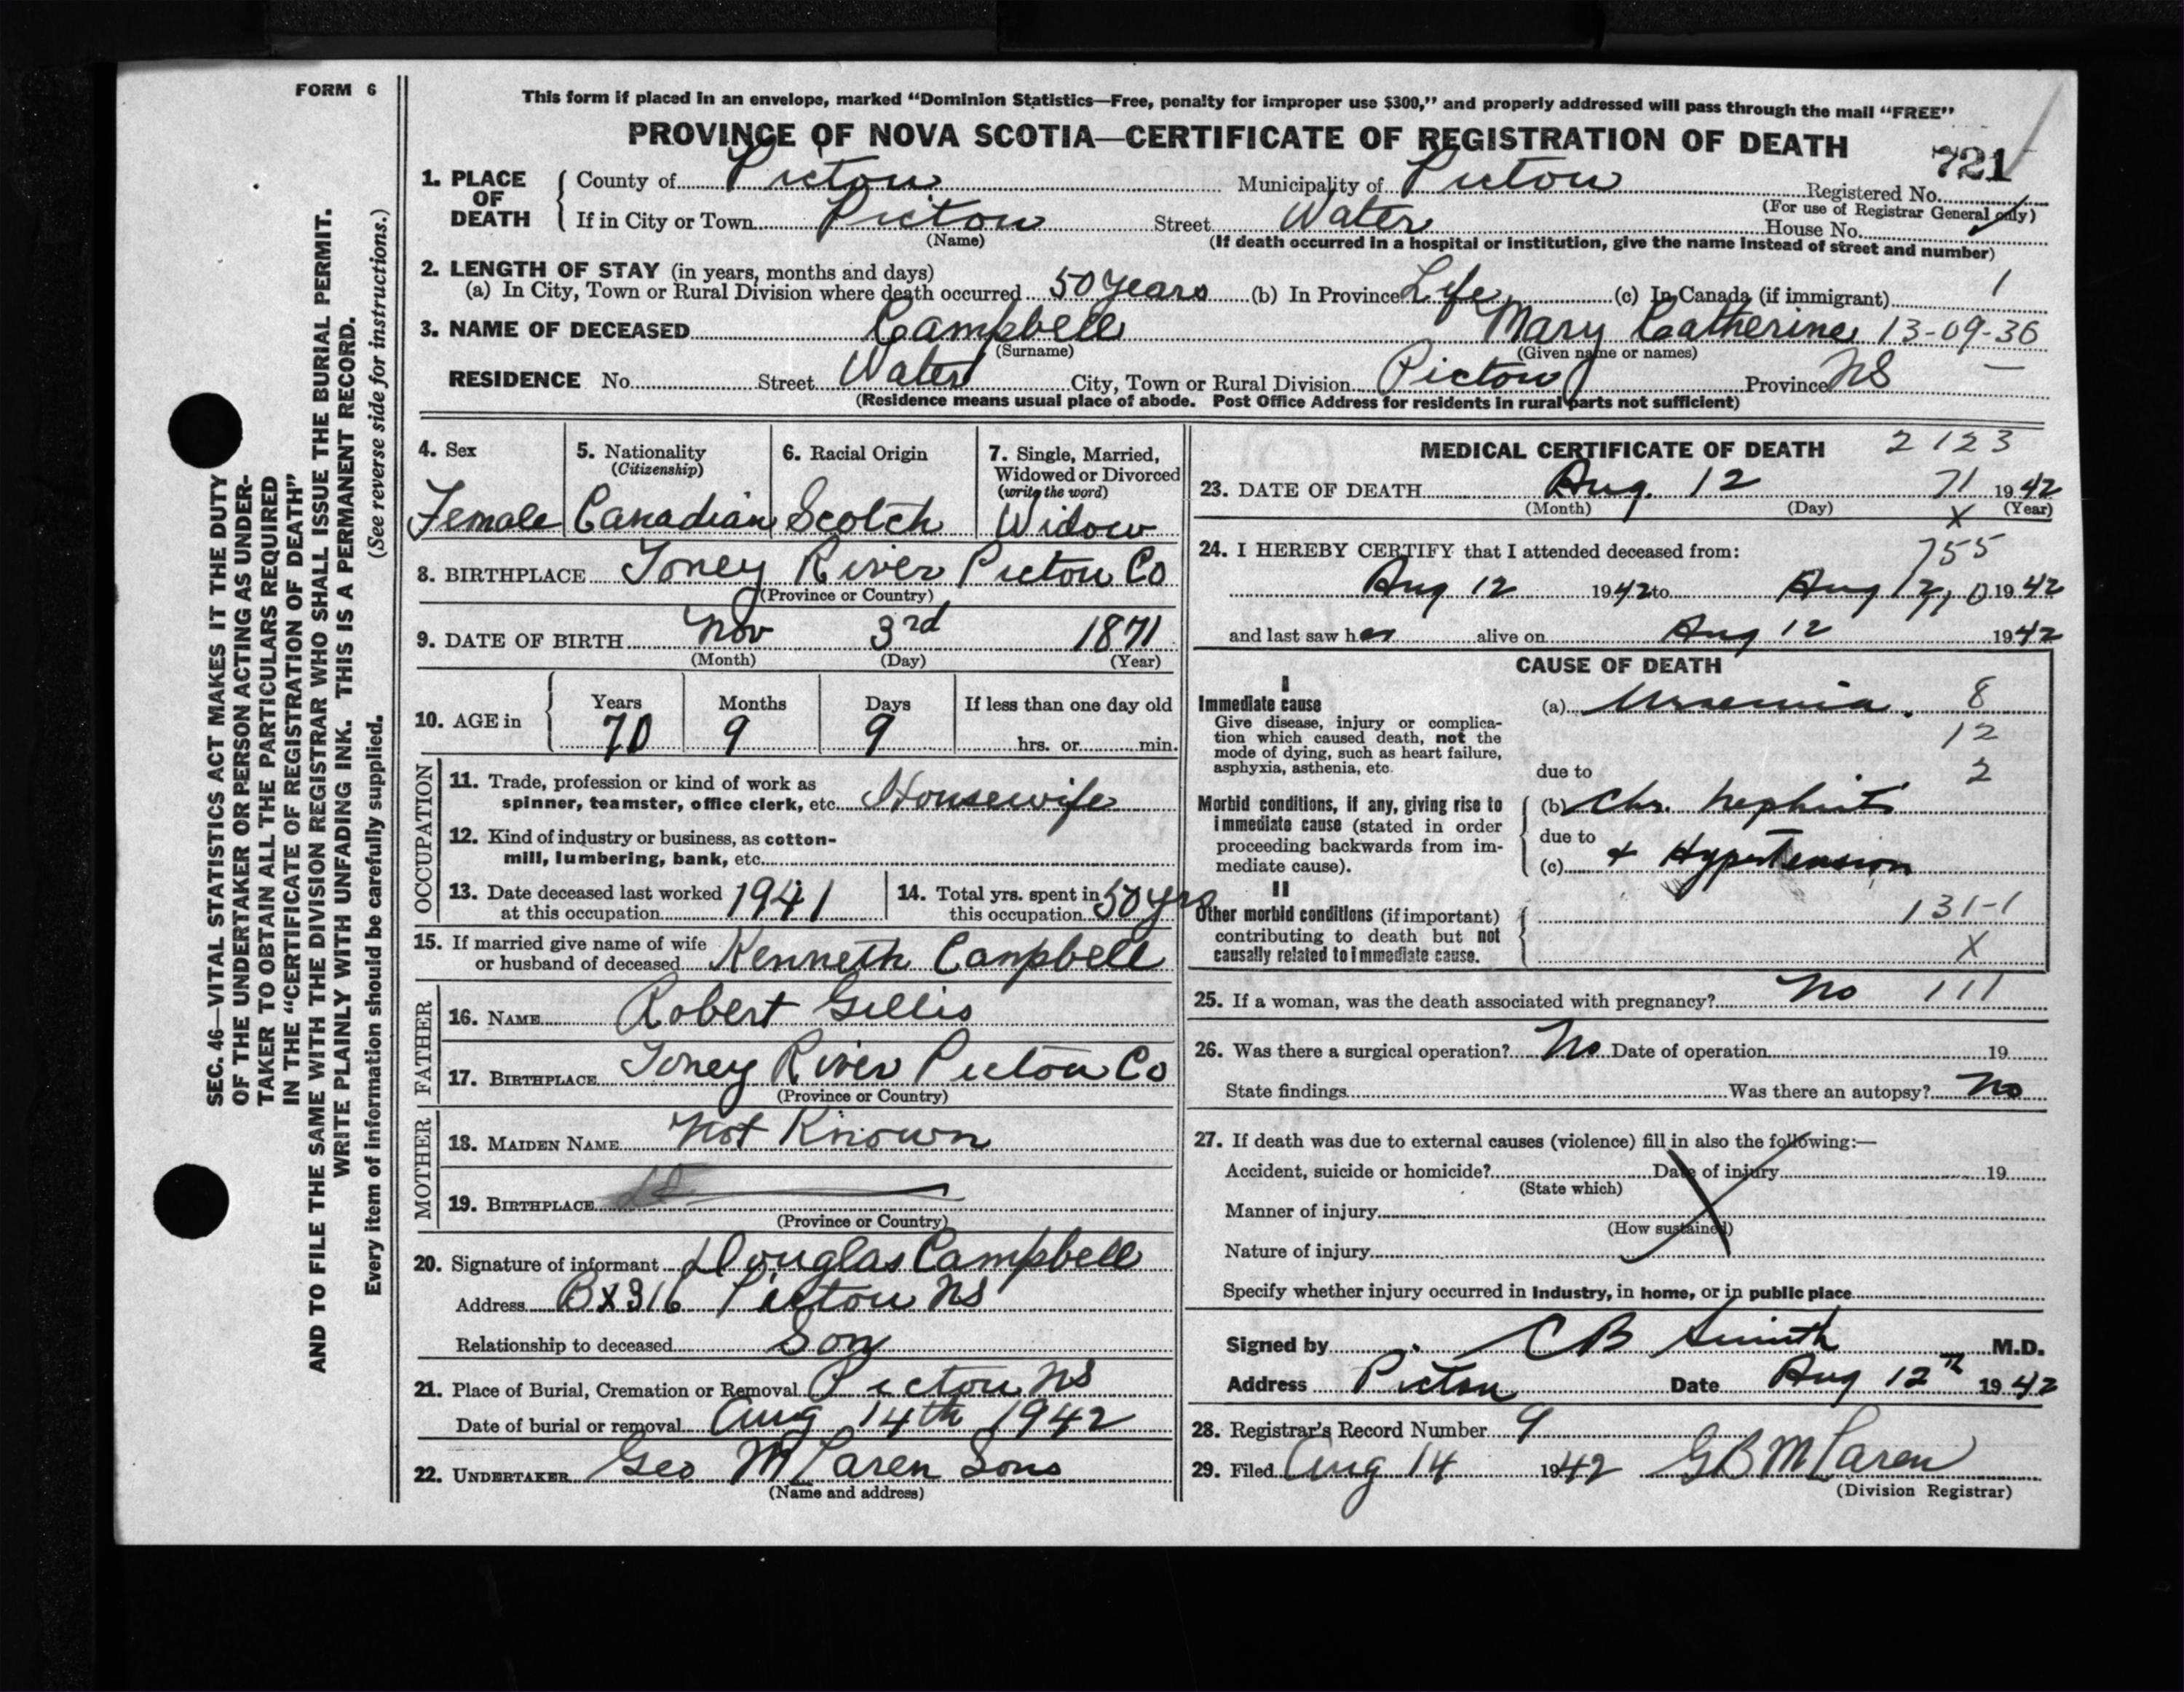 FORM 6
This form if placed in an envelope, marked “Dominion Statistics—Free, penalty for improper use $300,” and properly addressed will pass through the mail “FREE”
PROVINCE OF NOVA SCOTIA—CERTIFICATE OF REGISTRATION OF DEATH
721
1. PLACE OF DEATH { County of Pictou Municipality of Pictou Registered No.
(For use of Registrar General only)
If in City or Town Pictou Street Water House No.
(Name) (If death occurred in a hospital or institution, give the name instead of street and number)
2. LENGTH OF STAY (in years, months and days)
(a) In City, Town or Rural Division where death occurred 50 years (b) In Province Life (c) In Canada (if immigrant) 1
3. NAME OF DECEASED Campbell Mary Catherine 13-09-36
(Surname) (Given name or names)
RESIDENCE No. Street Water City, Town or Rural Division Pictou Province NS
(Residence means usual place of abode. Post Office Address for residents in rural parts not sufficient)
4. Sex Female
5. Nationality (Citizenship) Canadian
6. Racial Origin Scotch
7. Single, Married, Widowed or Divorced (write the word) Widow
8. BIRTHPLACE Toney River Pictou Co
(Province or Country)
9. DATE OF BIRTH Nov 3rd 1871
(Month) (Day) (Year)
10. AGE in { Years 70 Months 9 Days 9 If less than one day old
hrs. or min.
OCCUPATION
11. Trade, profession or kind of work as
spinner, teamster, office clerk, etc. Housewife
12. Kind of industry or business, as cotton-
mill, lumbering, bank, etc.
13. Date deceased last worked at this occupation 1941
14. Total yrs. spent in this occupation 50 yrs
15. If married give name of wife
or husband of deceased Kenneth Campbell
FATHER
16. NAME Robert Gillis
17. BIRTHPLACE Toney River Pictou Co
(Province or Country)
MOTHER
18. MAIDEN NAME Not Known
19. BIRTHPLACE
(Province or Country)
20. Signature of informant Douglas Campbell
Address Bx 316 Pictou NS
Relationship to deceased Son
21. Place of Burial, Cremation or Removal Pictou NS
Date of burial or removal Aug 14th 1942
22. UNDERTAKER Geo McLaren Sons
(Name and address)
MEDICAL CERTIFICATE OF DEATH 2123
23. DATE OF DEATH Aug. 12 71 1942
(Month) (Day) X (Year)
24. I HEREBY CERTIFY that I attended deceased from: 755
Aug 12 1942 to Aug 12 1942
and last saw her alive on Aug 12 1942
CAUSE OF DEATH
I
Immediate cause (a) Uraemia. 8
Give disease, injury or complica-
tion which caused death, not the 12
mode of dying, such as heart failure,
asphyxia, asthenia, etc. due to 2
Morbid conditions, if any, giving rise to (b) Chr. Nephritis
immediate cause (stated in order due to
proceeding backwards from im-
mediate cause). (c) + Hypertension
II
Other morbid conditions (if important) 131-1
contributing to death but not
causally related to immediate cause. X
25. If a woman, was the death associated with pregnancy? No 111
26. Was there a surgical operation? No Date of operation 19
State findings Was there an autopsy? No
27. If death was due to external causes (violence) fill in also the following:—
Accident, suicide or homicide? Date of injury 19
(State which)
Manner of injury
(How sustained)
Nature of injury
Specify whether injury occurred in Industry, in home, or in public place
Signed by C B Smith M.D.
Address Pictou Date Aug 12th 1942
28. Registrar's Record Number 9
29. Filed Aug 14 1942 G B McLaren
(Division Registrar)
SEC. 46—VITAL STATISTICS ACT MAKES IT THE DUTY
OF THE UNDERTAKER OR PERSON ACTING AS UNDER-
TAKER TO OBTAIN ALL THE PARTICULARS REQUIRED
IN THE “CERTIFICATE OF REGISTRATION OF DEATH”
AND TO FILE THE SAME WITH THE DIVISION REGISTRAR WHO SHALL ISSUE THE BURIAL PERMIT.
WRITE PLAINLY WITH UNFADING INK. THIS IS A PERMANENT RECORD.
Every item of information should be carefully supplied. (See reverse side for instructions.)